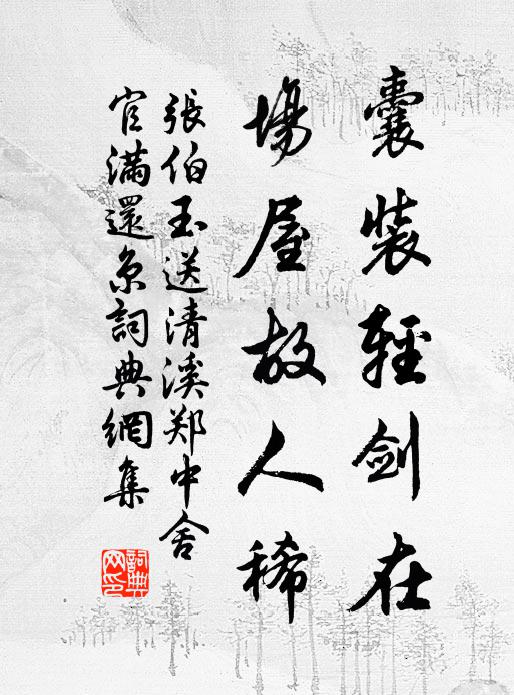 囊裝輕剑在
場屋故人稀
張伯玉送清溪郑中舍
官滿還京詞典網集
詞典网印